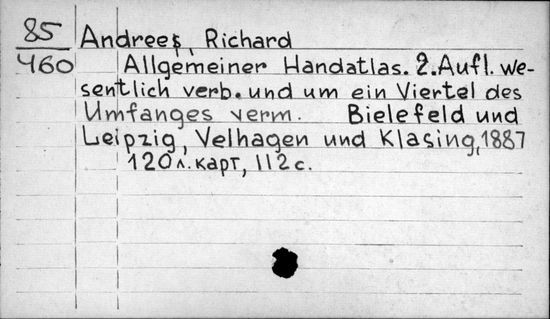 85
460
Andrees, Richard
Allgemeiner Handatlas. 2. Aufl. we-
sentlich verb. und um ein Viertel des
Umfanges verm. Bielefeld und
Leipzig, Velhagen und Klasing, 1887
120 л. карт, 112 с.